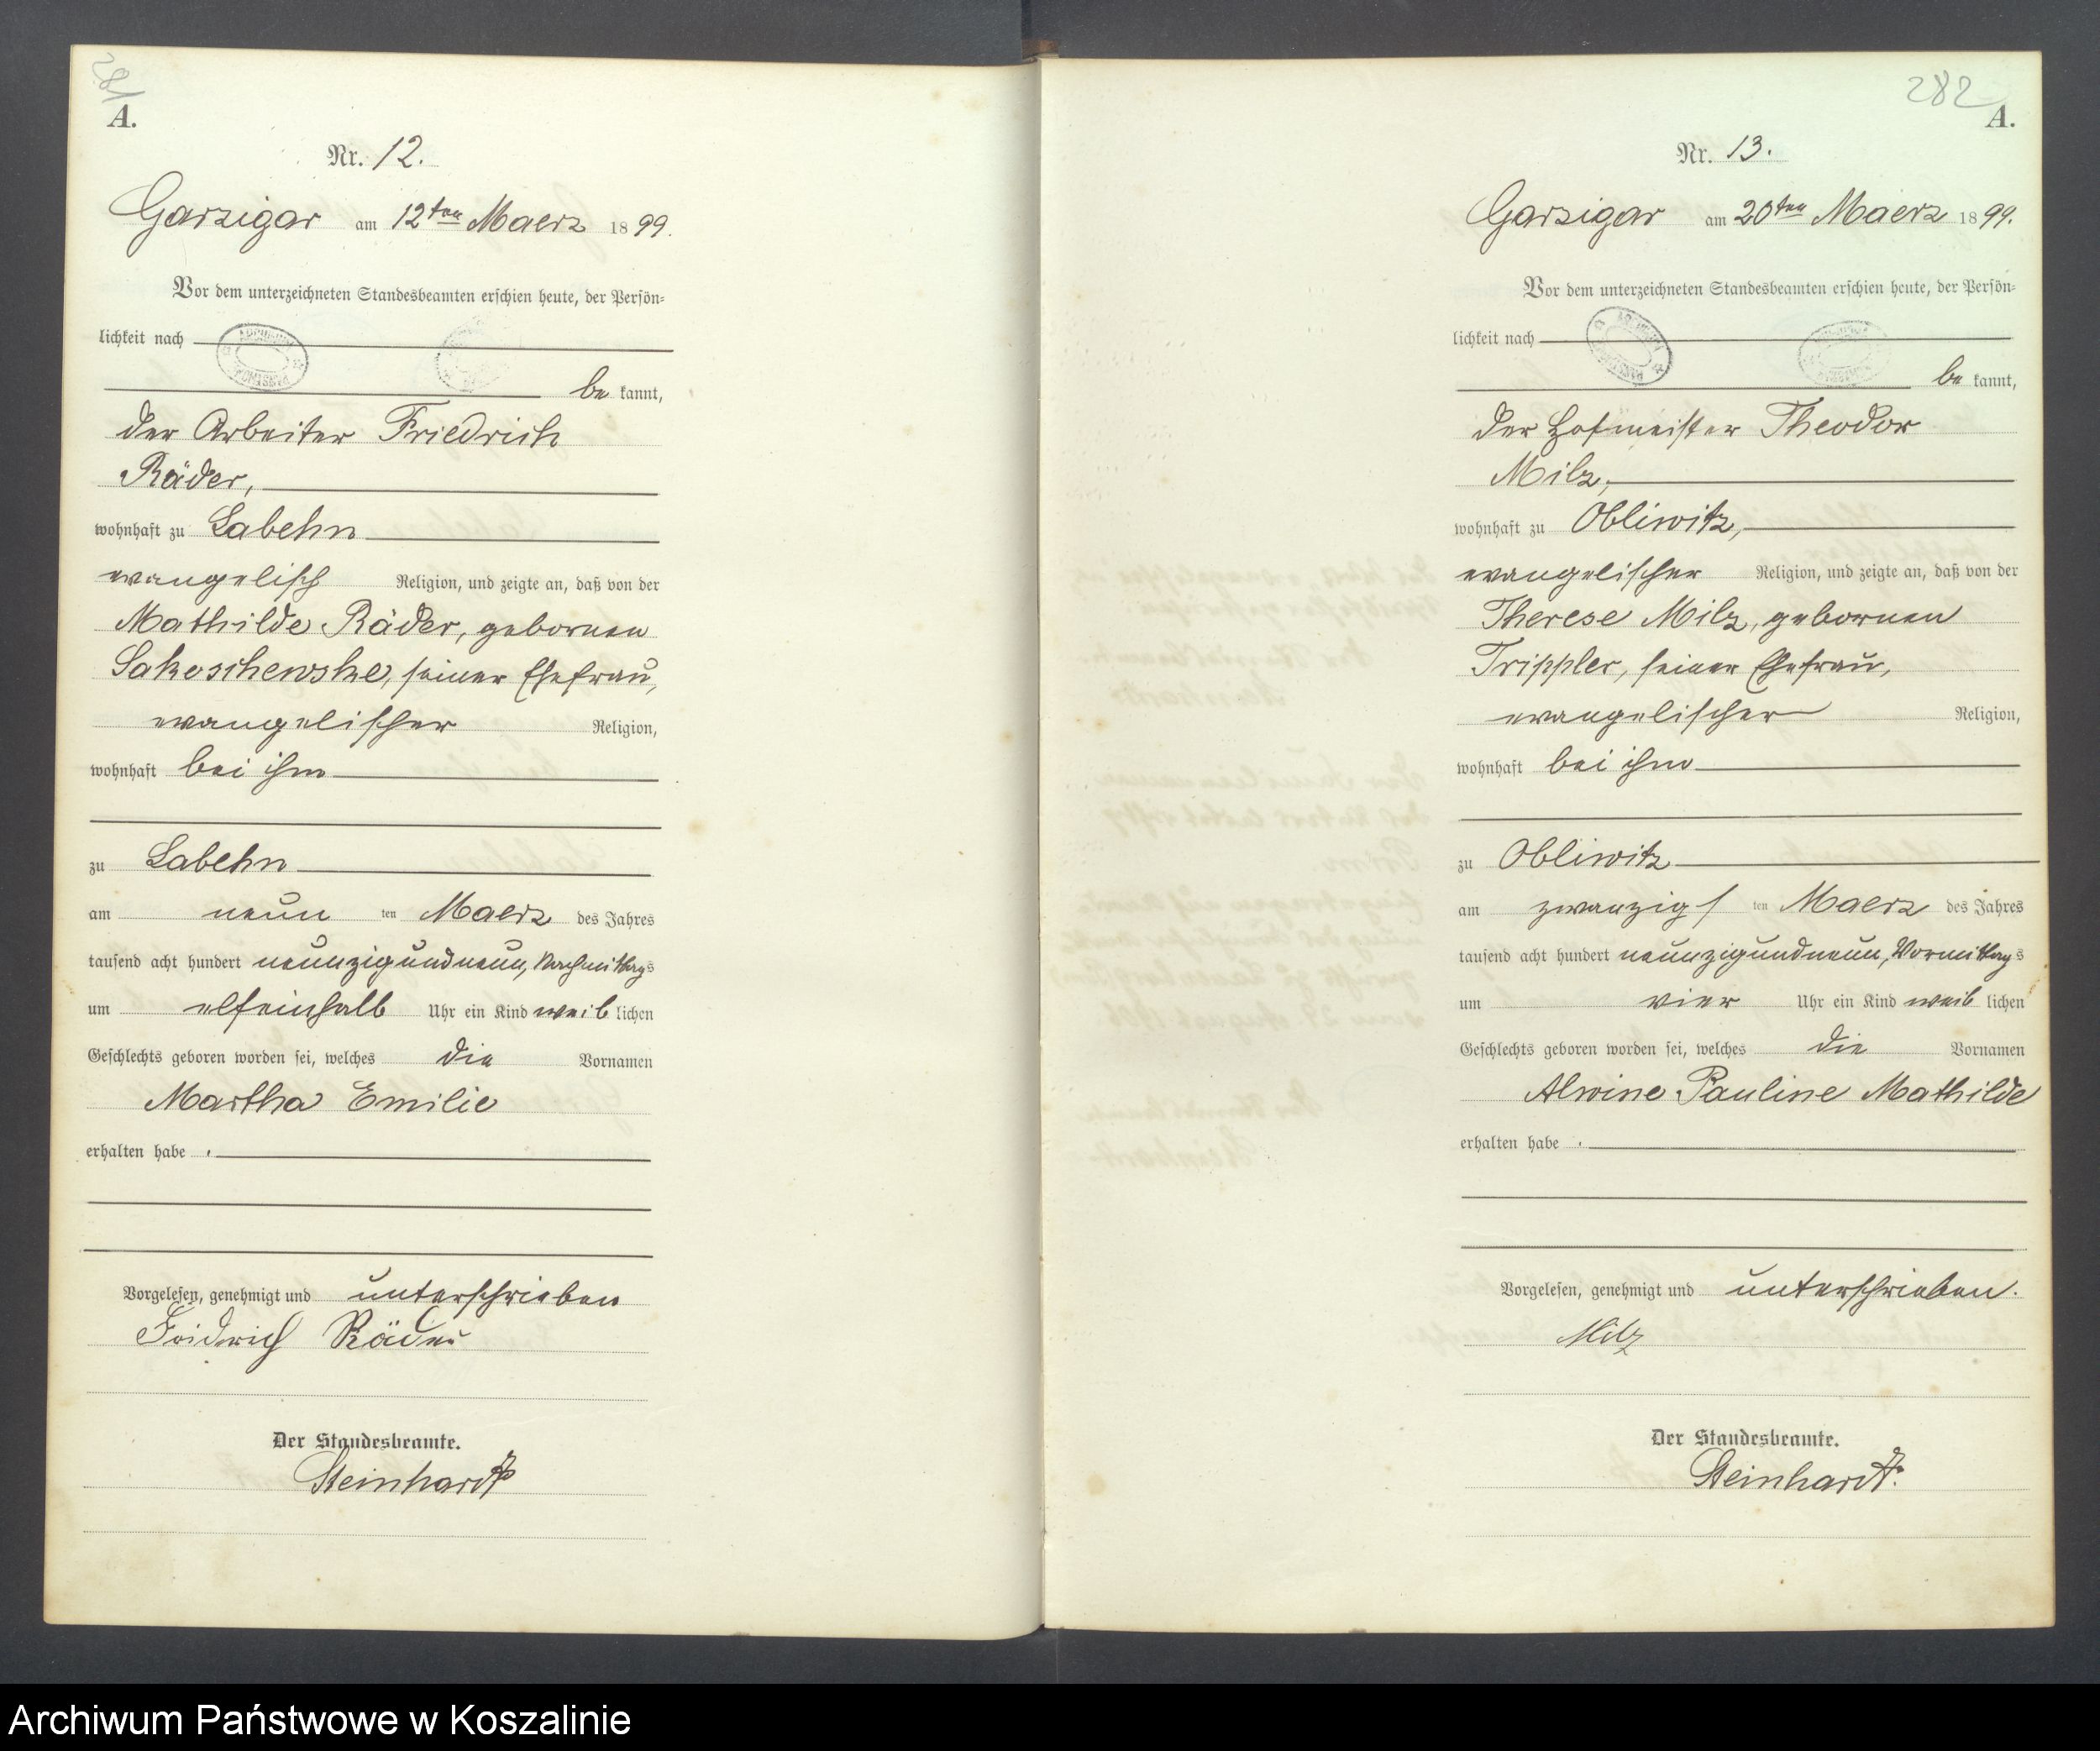 281
A.
Nr. 12.
Garzigar am 12ten Maerz 1899.
Vor dem unterzeichneten Standesbeamten erschien heute, der Persön-
lichkeit nach
be kannt,
der Arbeiter Friedrich
Räder,
wohnhaft zu Labehn
evangelisch Religion, und zeigte an, daß von der
Mathilde Räder, gebornen
Sakoschewske, seiner Ehefrau,
evangelischer Religion,
wohnhaft bei ihm
zu Labehn
am neun ten Maerz des Jahres
tausend acht hundert neunzigundneun, Nachmittags
um elfeinhalb Uhr ein Kind weib lichen
Geschlechts geboren worden sei, welches die Vornamen
Martha Emilie
erhalten habe .
Vorgelesen, genehmigt und unterschrieben
Fridrich Räder
Der Standesbeamte.
Steinhardt
282
A.
Nr. 13.
Garzigar am 20ten Maerz 1899.
Vor dem unterzeichneten Standesbeamten erschien heute, der Persön-
lichkeit nach
be kannt,
der Hofmeister Theodor
Milz,
wohnhaft zu Obliwitz,
evangelischer Religion, und zeigte an, daß von der
Therese Milz, gebornen
Trippler, seiner Ehefrau,
evangelischer Religion,
wohnhaft bei ihm
zu Obliwitz
am zwanzigs ten Maerz des Jahres
tausend acht hundert neunzigundneun, Vormittags
um vier Uhr ein Kind weib lichen
Geschlechts geboren worden sei, welches die Vornamen
Alwine Pauline Mathilde
erhalten habe .
Vorgelesen, genehmigt und unterschrieben.
Milz
Der Standesbeamte.
Steinhardt.
Archiwum Państwowe w Koszalinie